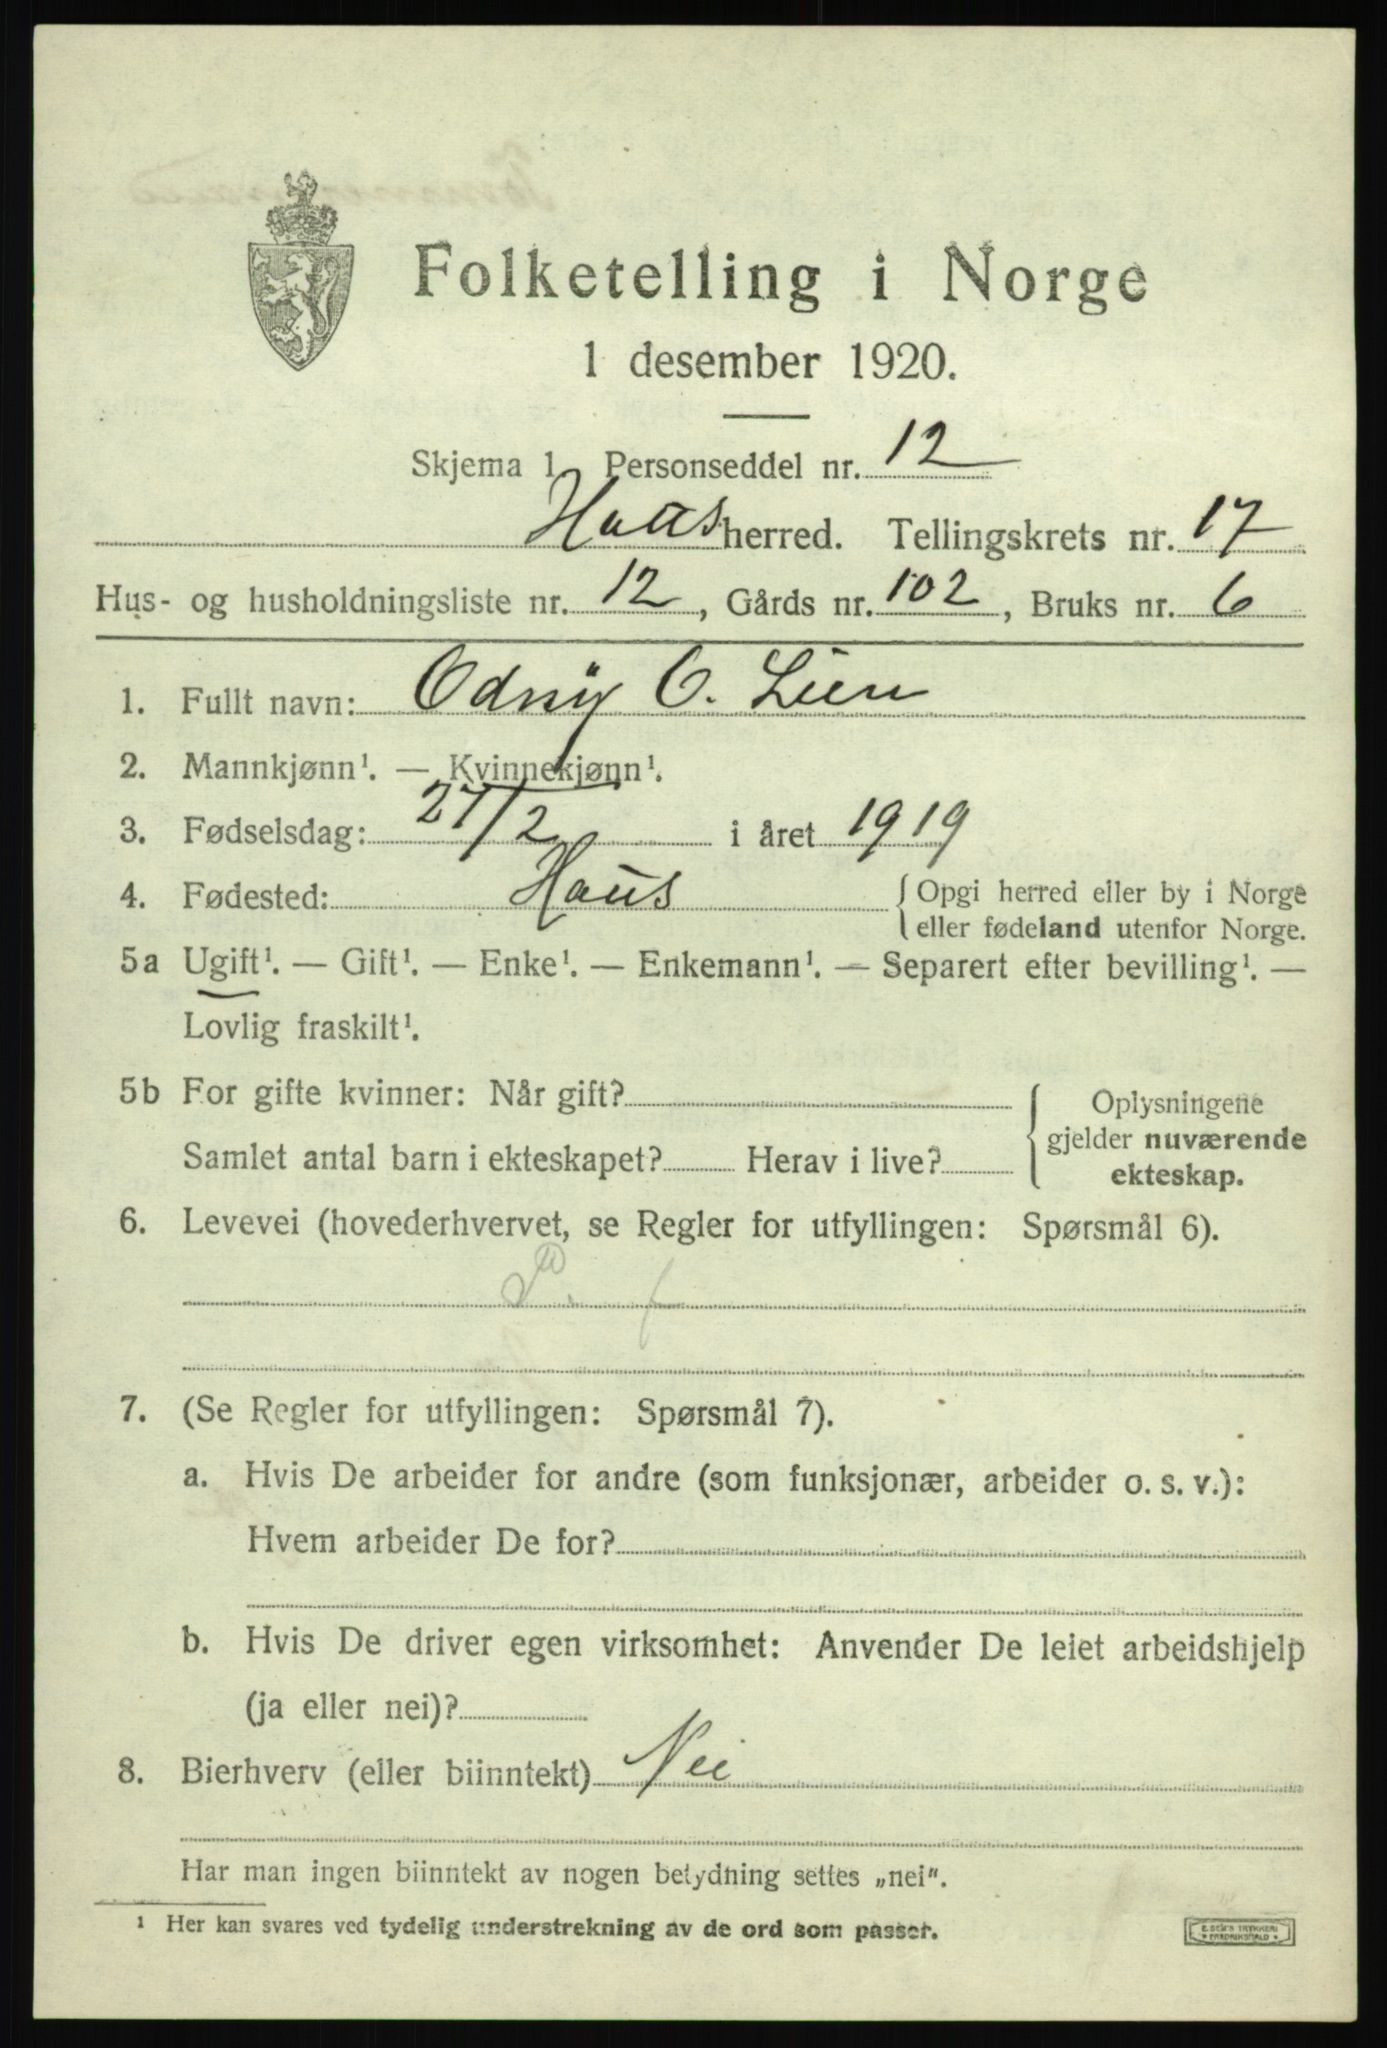 Folketelling i Norge
1 desember 1920.
Skjema 1 Personseddel nr. 12
Haus herred. Tellingskrets nr. 17
Hus- og husholdningsliste nr. 12, Gårds nr. 102, Bruks nr. 6
1. Fullt navn: Odny O. Lien
2. Mannkjønn¹. — Kvinnekjønn¹.
3. Fødselsdag: 27/2 i året 1919
4. Fødested: Haus { Opgi herred eller by i Norge
eller fødeland utenfor Norge.
5a Ugift¹. — Gift¹. — Enke¹. — Enkemann¹. — Separert efter bevilling¹. —
Lovlig fraskilt¹.
5b For gifte kvinner: Når gift?
Samlet antal barn i ekteskapet? Herav i live?
Oplysningene
gjelder nuværende
ekteskap.
6. Levevei (hovederhvervet, se Regler for utfyllingen: Spørsmål 6).
7. (Se Regler for utfyllingen: Spørsmål 7).
a. Hvis De arbeider for andre (som funksjonær, arbeider o. s. v.):
Hvem arbeider De for?
b. Hvis De driver egen virksomhet: Anvender De leiet arbeidshjelp
(ja eller nei)?
8. Bierhverv (eller biinntekt) Nei
Har man ingen biinntekt av nogen betydning settes „nei“.
¹ Her kan svares ved tydelig understrekning av de ord som passer.
E. SEM'S TRYKKERI
FREDRIKSHALD